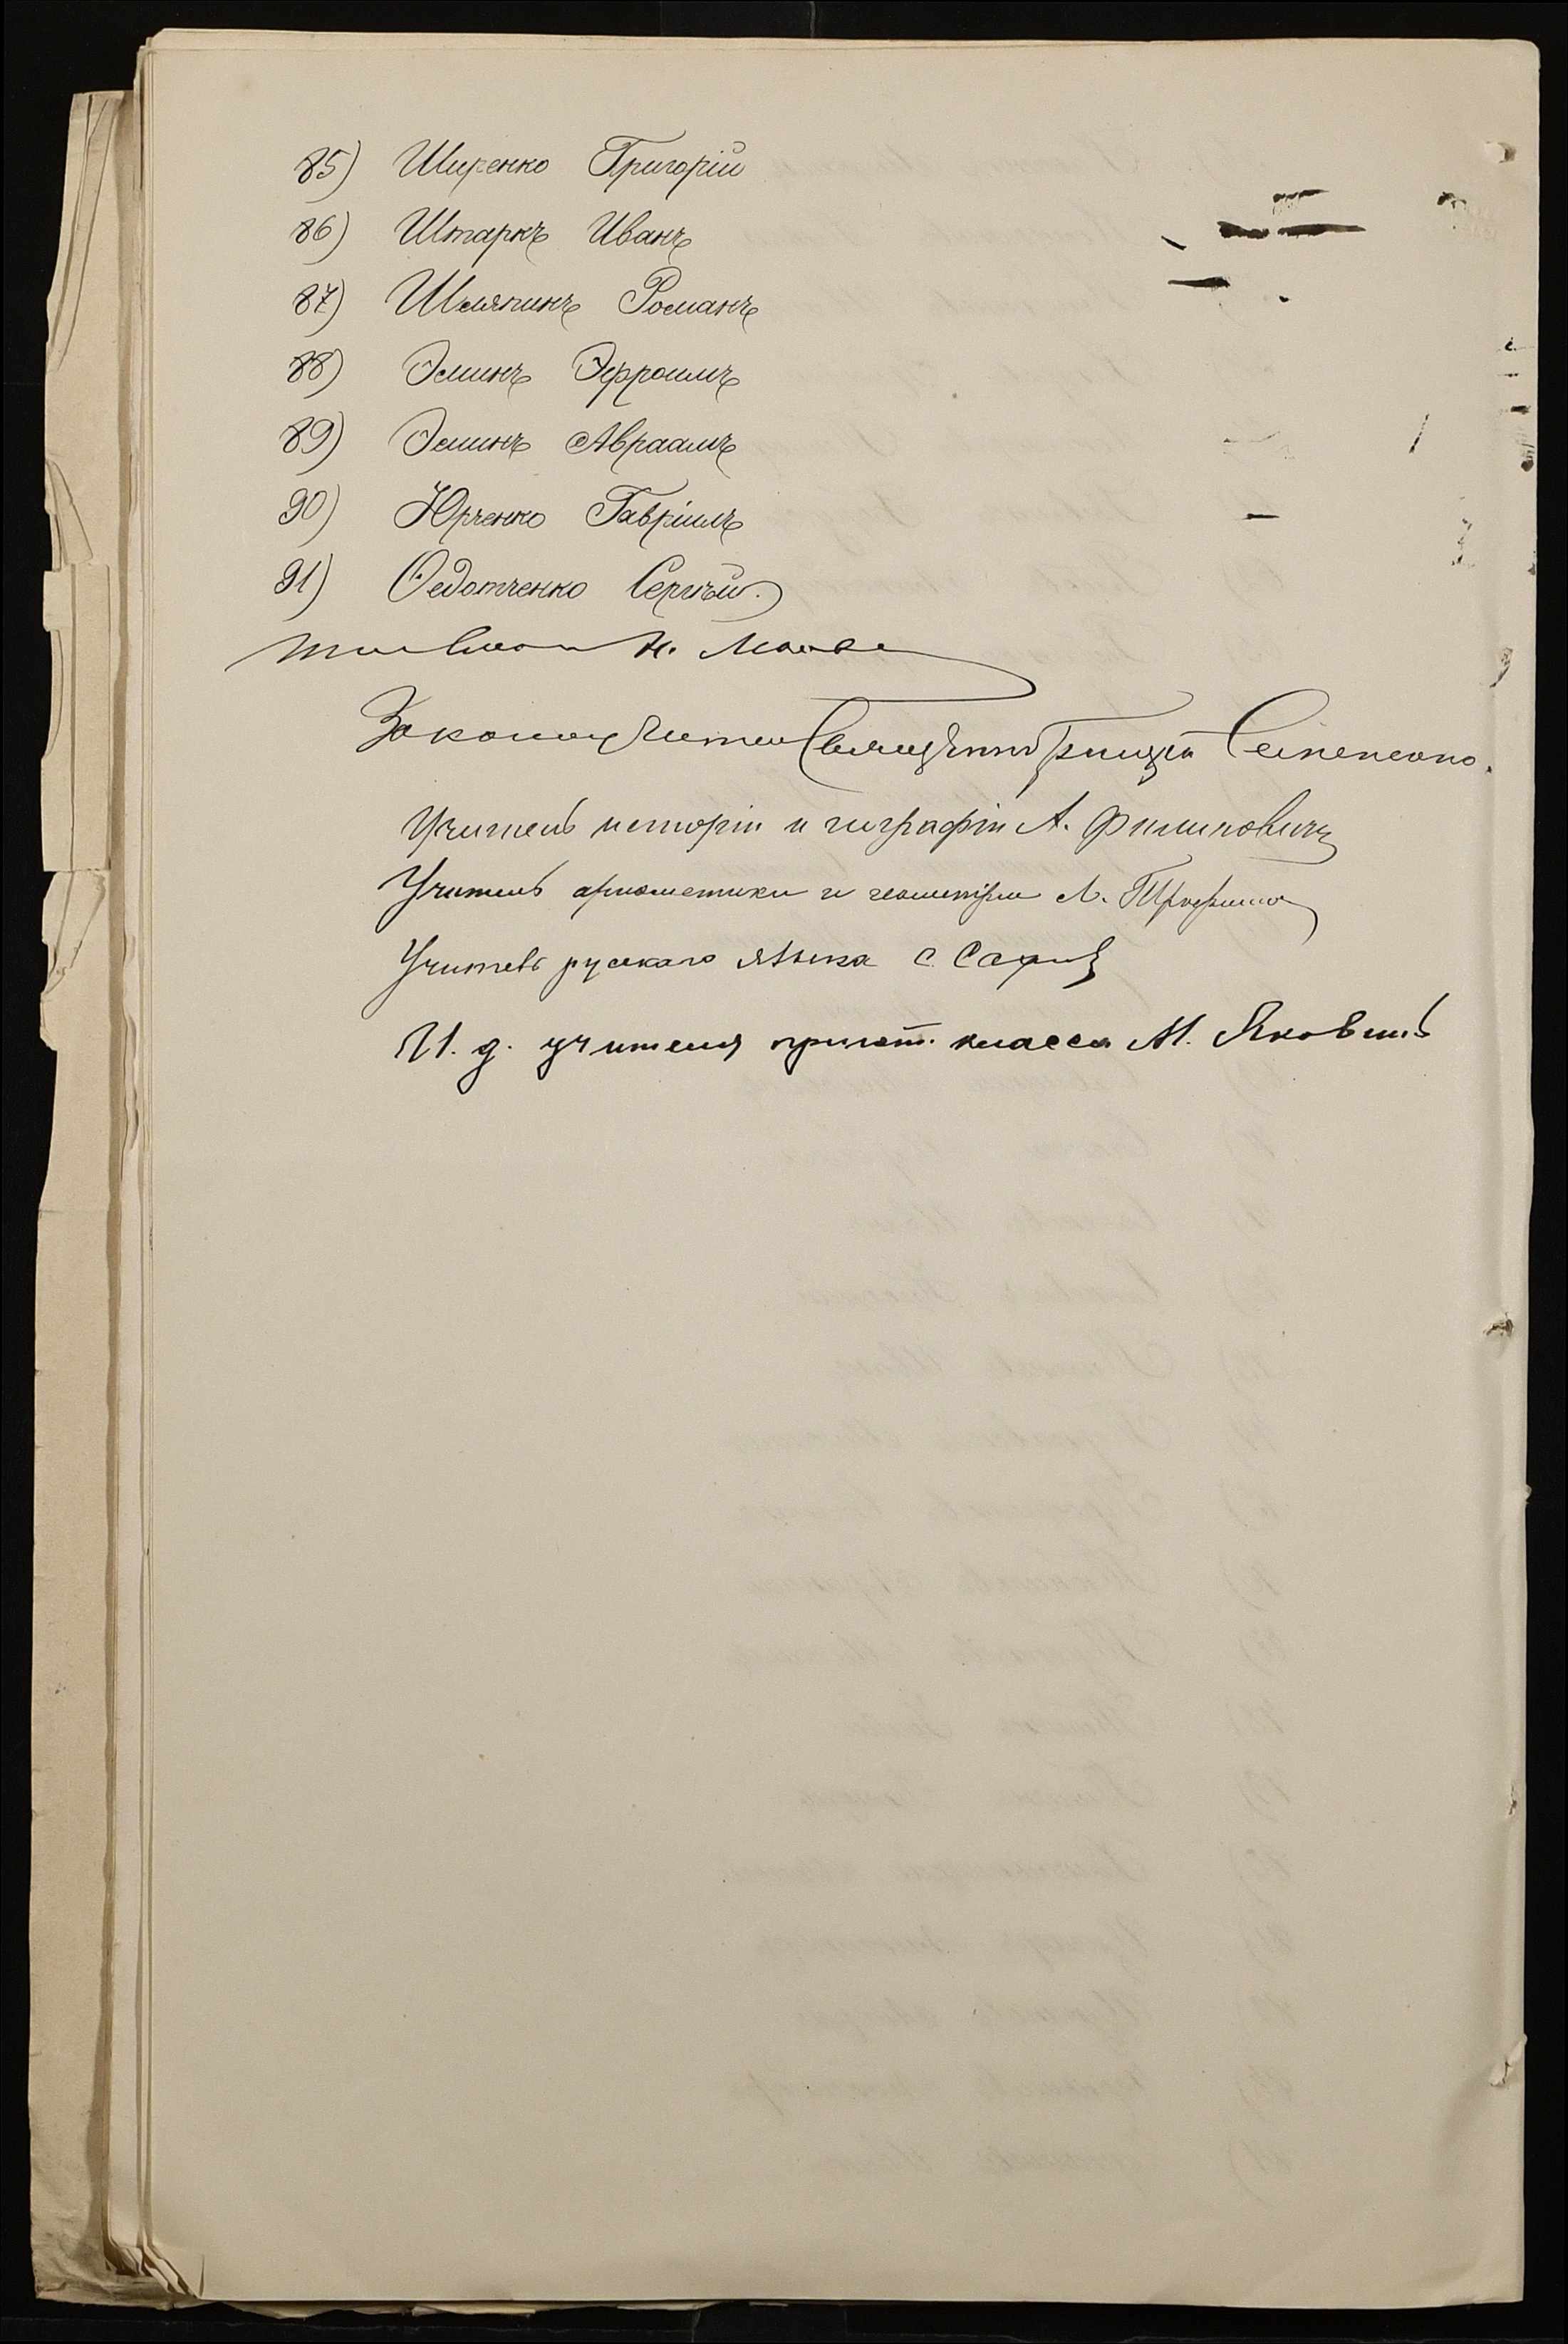 85) Ширенко Григорій
86) Штаркъ Иванъ
87) Шляпинъ Романъ
88) Эминъ Эфроимъ
89) Эминъ Авраамъ
90) Юрченко Гавріилъ
91) Ѳедотченко Сергѣй.
Н.
Законоучитель Священникъ
Учитель исторіи и географіи А. Филиповичъ
Учитель ариѳметики и геометріи
Учитель русскаго языка С.
И. д. учителя пригот. класса М. Яковлевъ